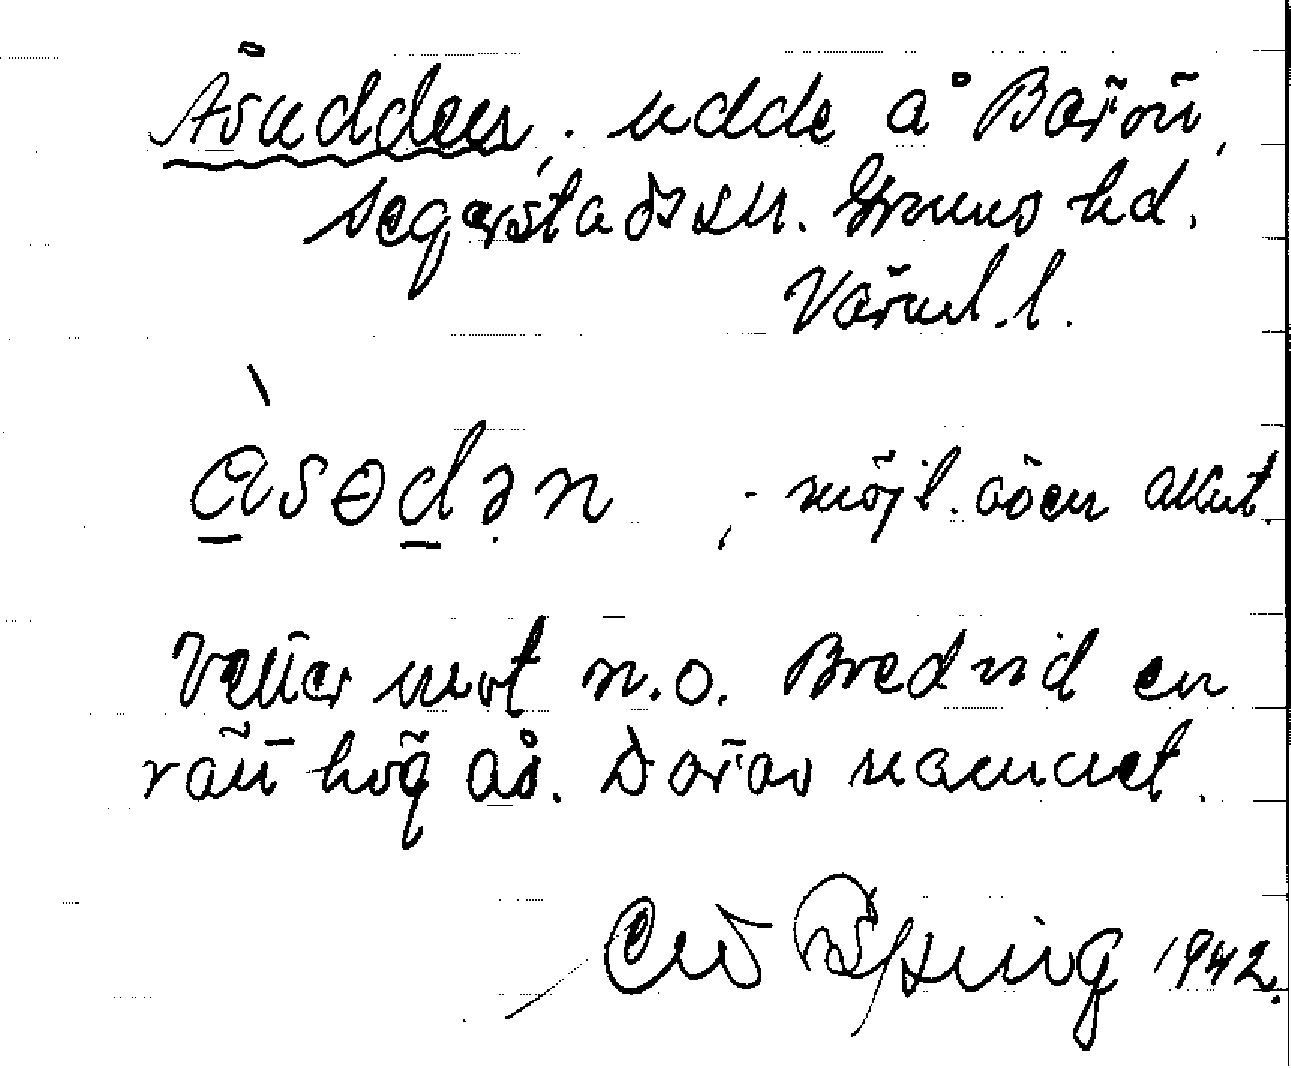 Åsudden, udde å Bärön,
Segerstads sn. Grums hd.
Värml. l.
àsɵdən ; möjl. även akut.
Vetter mot n.o. Bredvid en
rätt hög ås. Därav namnet.
1942.